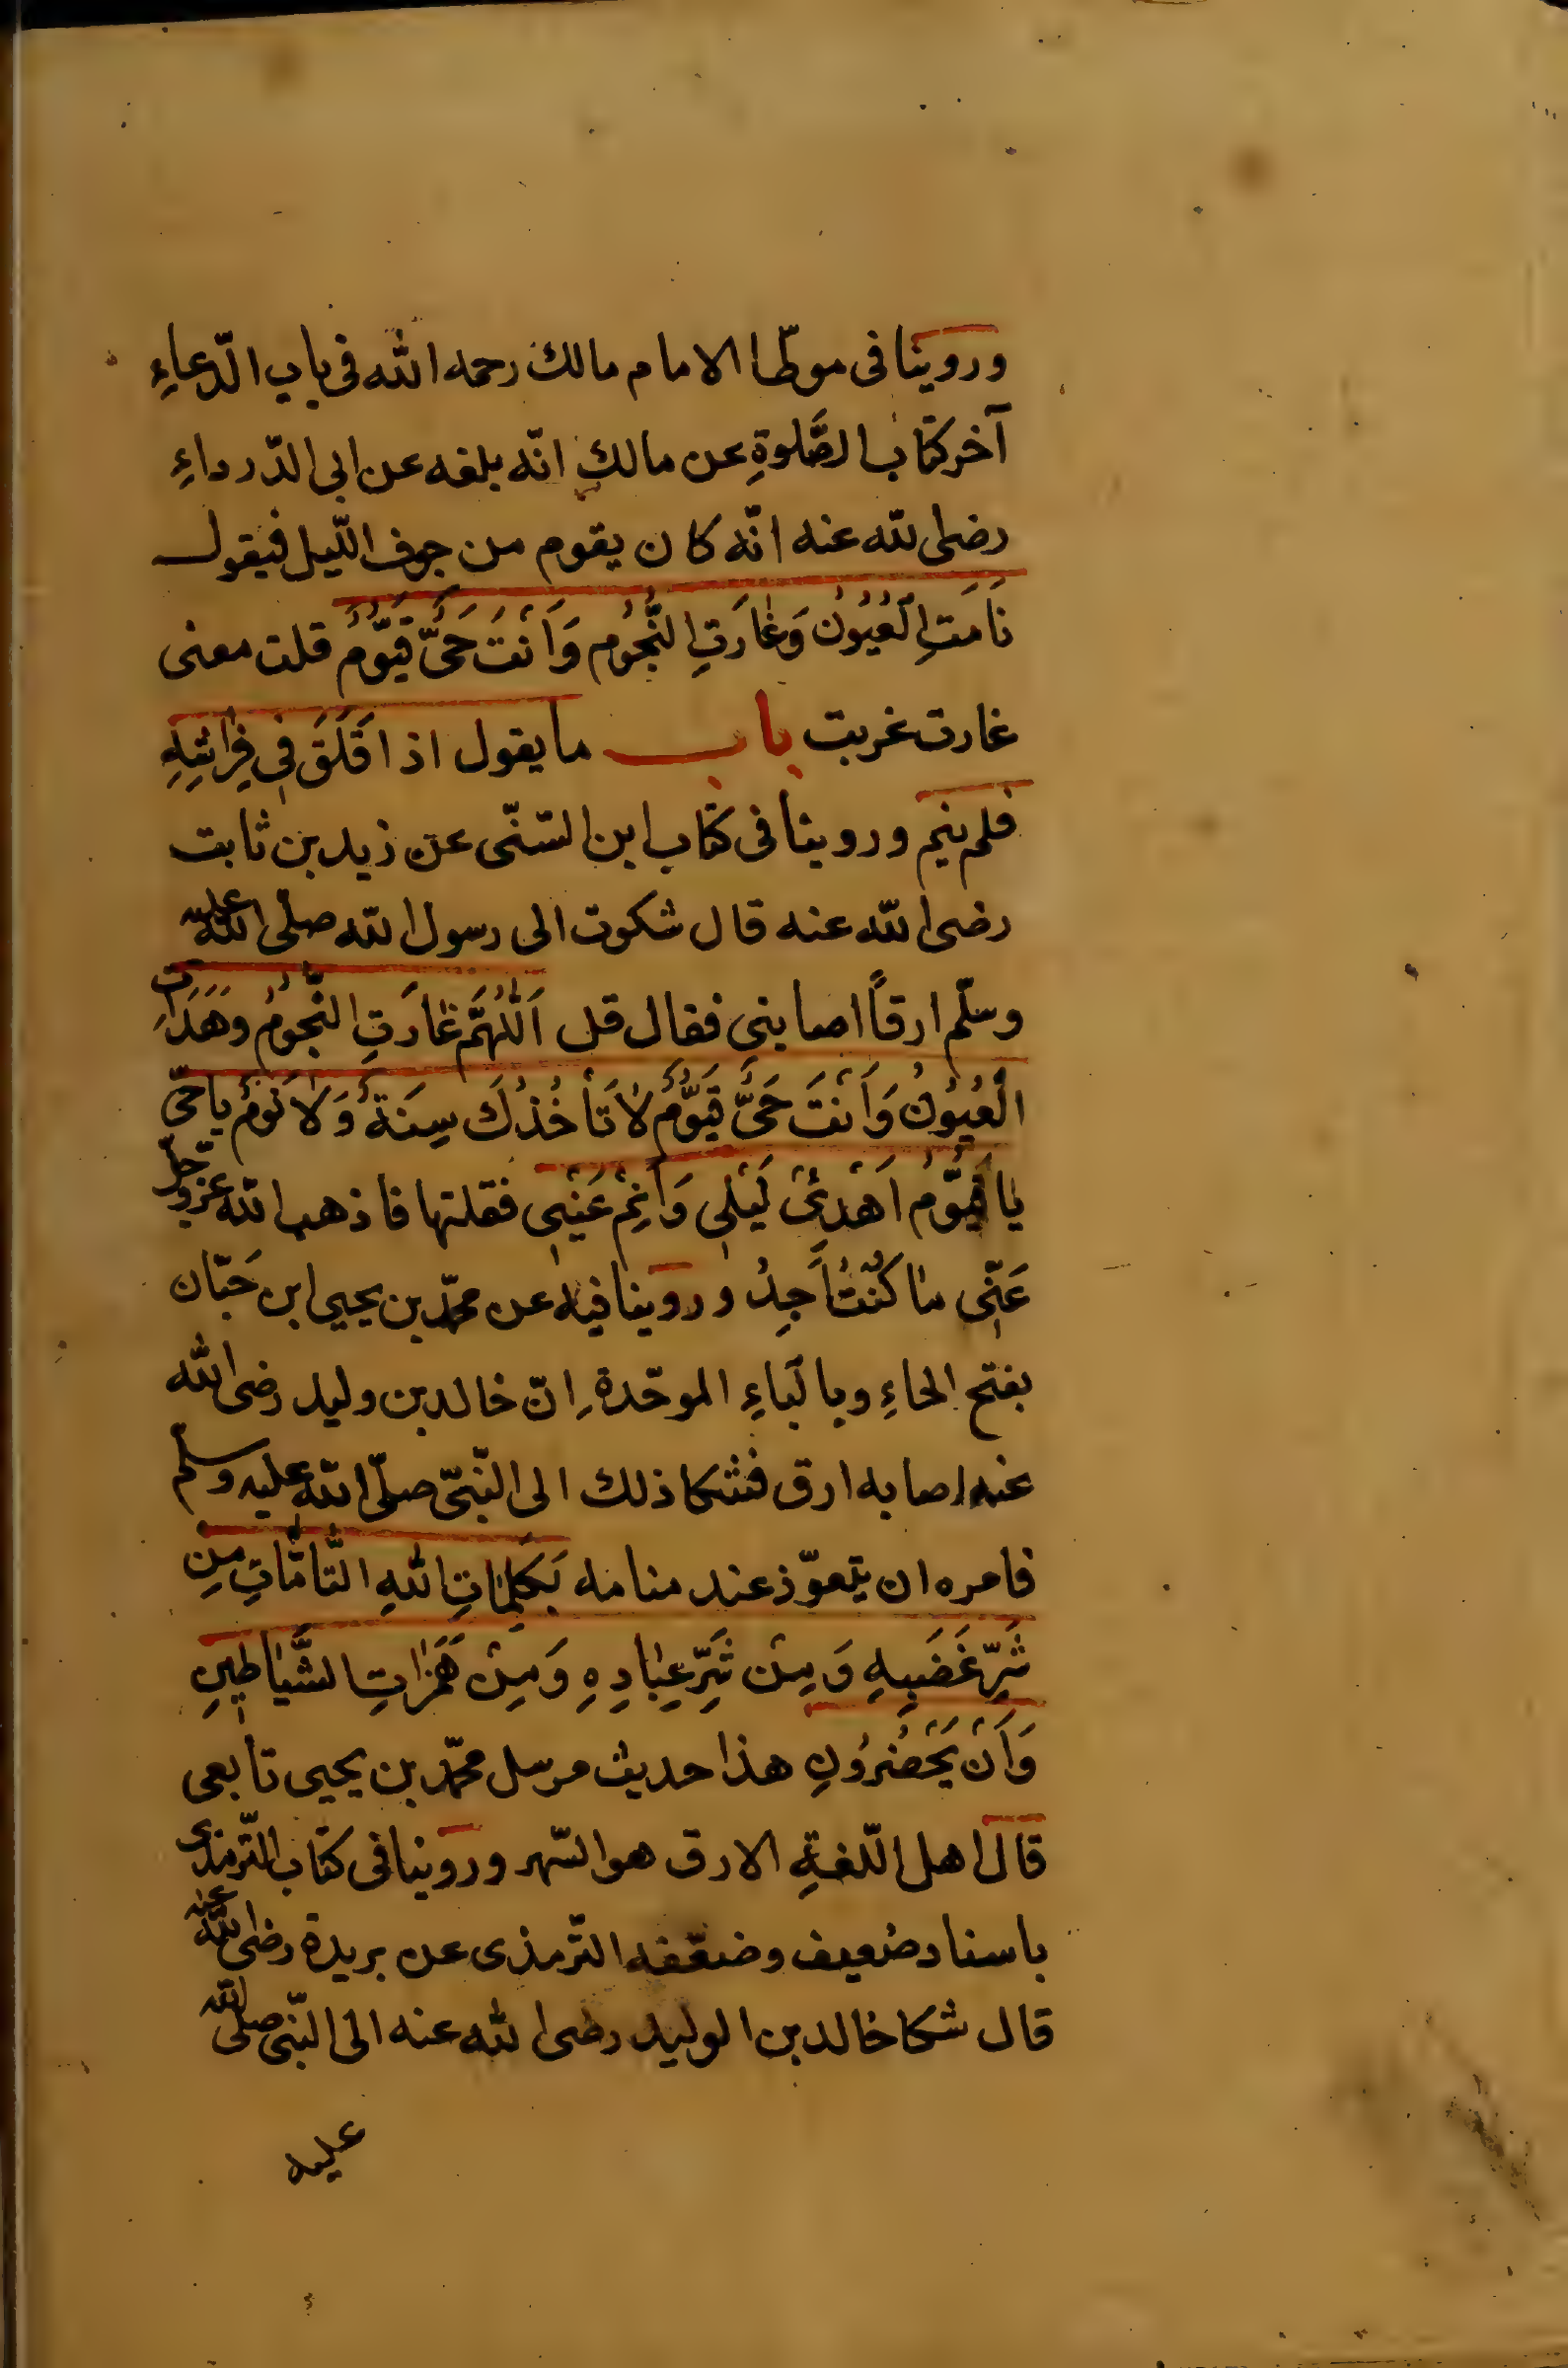 وروينا فى موطّا الامام مالك رحمه الله فى باب الدّعاءِ
آخر كتاب الصَّلوةِ عن مالك انّه بلغه عن ابى الدّرداءِ
رضى لله عنه انّه كان يقوم من جوف اللّيل فيقول
نَامَتِ الْعُيُوْنُ وَغَارَتِ النُّجُوْمُ وَاَنْتَ حَىٌّ قَيُّوْمٌ قلت معنى
غارت غربت باب ما يقول اذا قَلَقَ فِى فِرٰاشِهِ
فلم ينم وروينا فى كتاب ابن السّنّى عن زيد بن ثابت
رضى الله عنه قال شكوت الى رسول الله صلّى الله عليه
وسلّم ارقاً اصابنى فقال قل اَللّٰهُمَّ غٰارَتِ النُّجُوْمُ وَهَدَاَتِ
الْعُيُوْنُ وَاَنْتَ حَىٌّ قَيُّوْمٌ لاٰ تَأخُذُكَ سِنَةٌ وَلاٰ نَوْمٌ يا حَىّ
يٰا قَيُّوْمُ اَهْدِئْ لَيْلِى وَاَنِمْ عَيْنِى فقلتها فاذهب الله عزّ وجلّ
عَنّى مٰا كُنْتُ اَجِدُ وروينا فيه عن محمّد بن يحيى ابن حَبّان
بفتح الحاءِ وبالباءِ الموحّدة اِنّ خالد بن وليد رضى الله
عنه اصابه ارق فشكا ذلك الى النّبىّ صلّى الله عليه وسلّم
فامره ان يتعوّذ عند منامه بَكَلِمٰاتِ اللهِ التّامّاتِ مِنِ
شَرِّ غَضَبِهِ وَمِنْ شَرِّ عِبٰادِهِ وَمِنْ هَمَزٰاتِ الشَّيٰاطِينِ
وَاَنْ يَحْضُرُوْنِ هذا حديث مرسل محمّد بن يحيى تابعى
قال اهل اللّغةِ الارق هو السّهر وروينا فى كتاب التّرمذى
باسناد ضعيف وضعّفه التّرمذى عن بريدة رضى الله عنه
قال شكا خالد بن الوليد رضى الله عنه الى النّبىّ صلّى الله
عليه